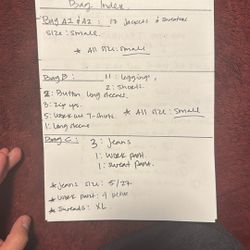 Bag Index.
Bag A1 & A2: 13 Jackets & Sweaters
Size: Small.
* All Size: Small
Bag B: 11: Leggings,
2: Shorts.
2: Button Long Sleeves.
3: Zip ups.
5: Workout T-Shirts. * All Size: Small
1: Long Sleeve
Bag C: 3: Jeans
1: Work Pant.
1: Sweat Pant.
* Jeans Size: 5/27.
* Work Pant: 4
* Sweats: XL.